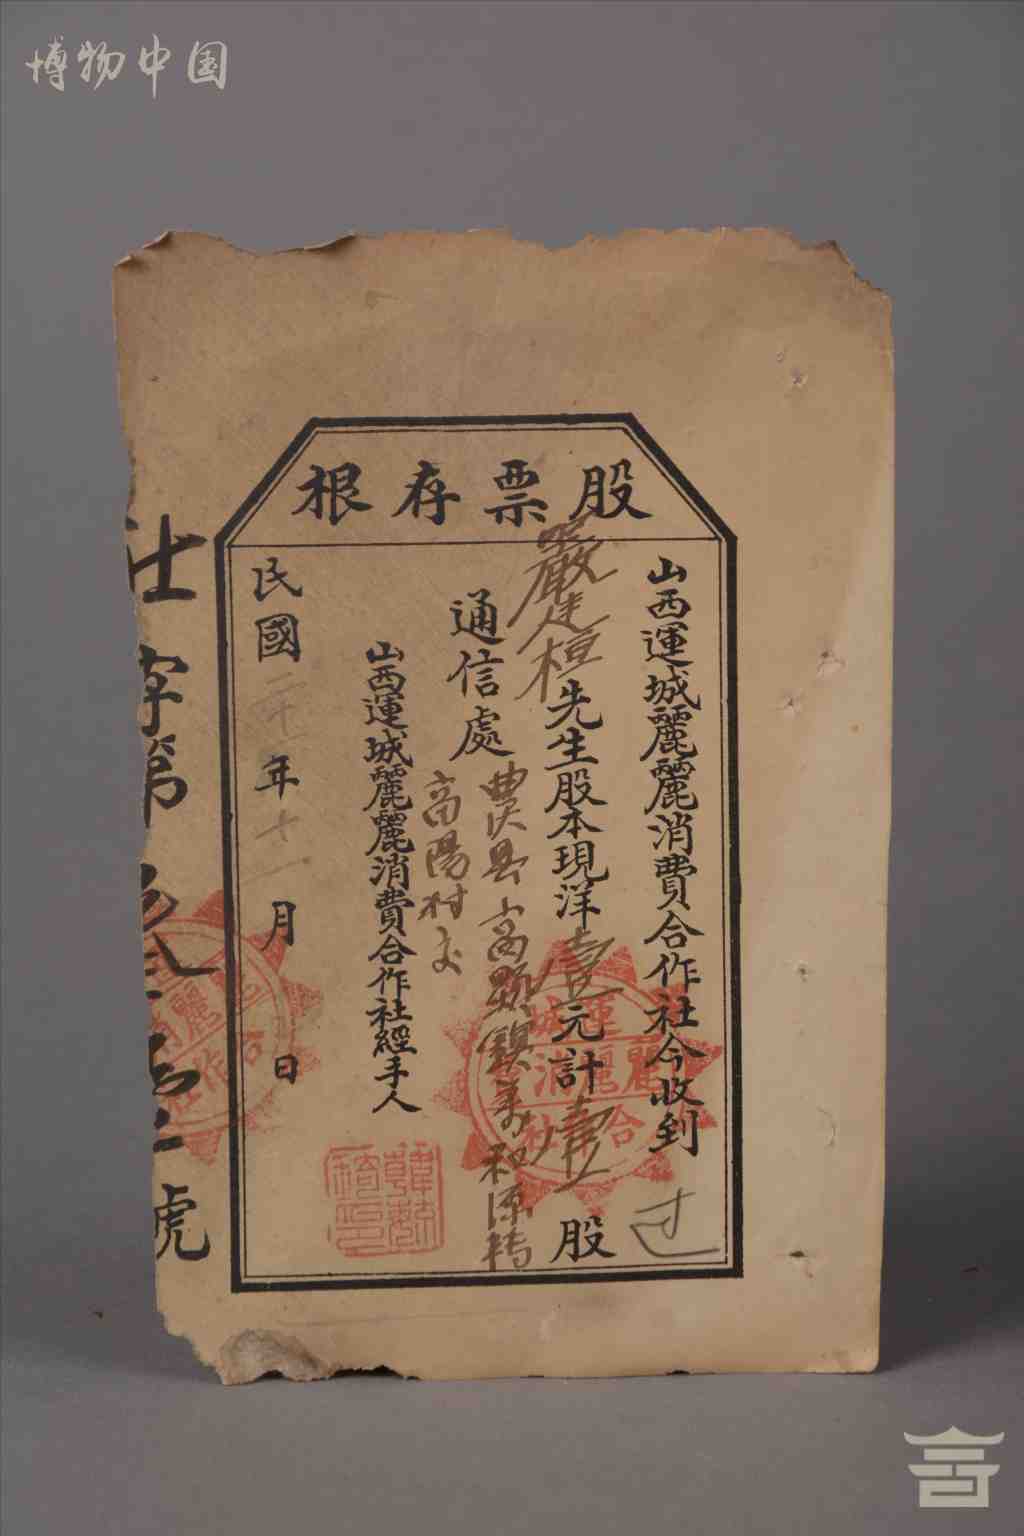 博物中国
股票存根
山西運城麗麗消費合作社今收到
嚴建桓先生股本現洋壹元計壹股
通信處
曲沃县高顯鎮義和源轉
高陽村交
山西運城麗麗消費合作社經手人
民國二十一年十一月 日
社字第 號
过